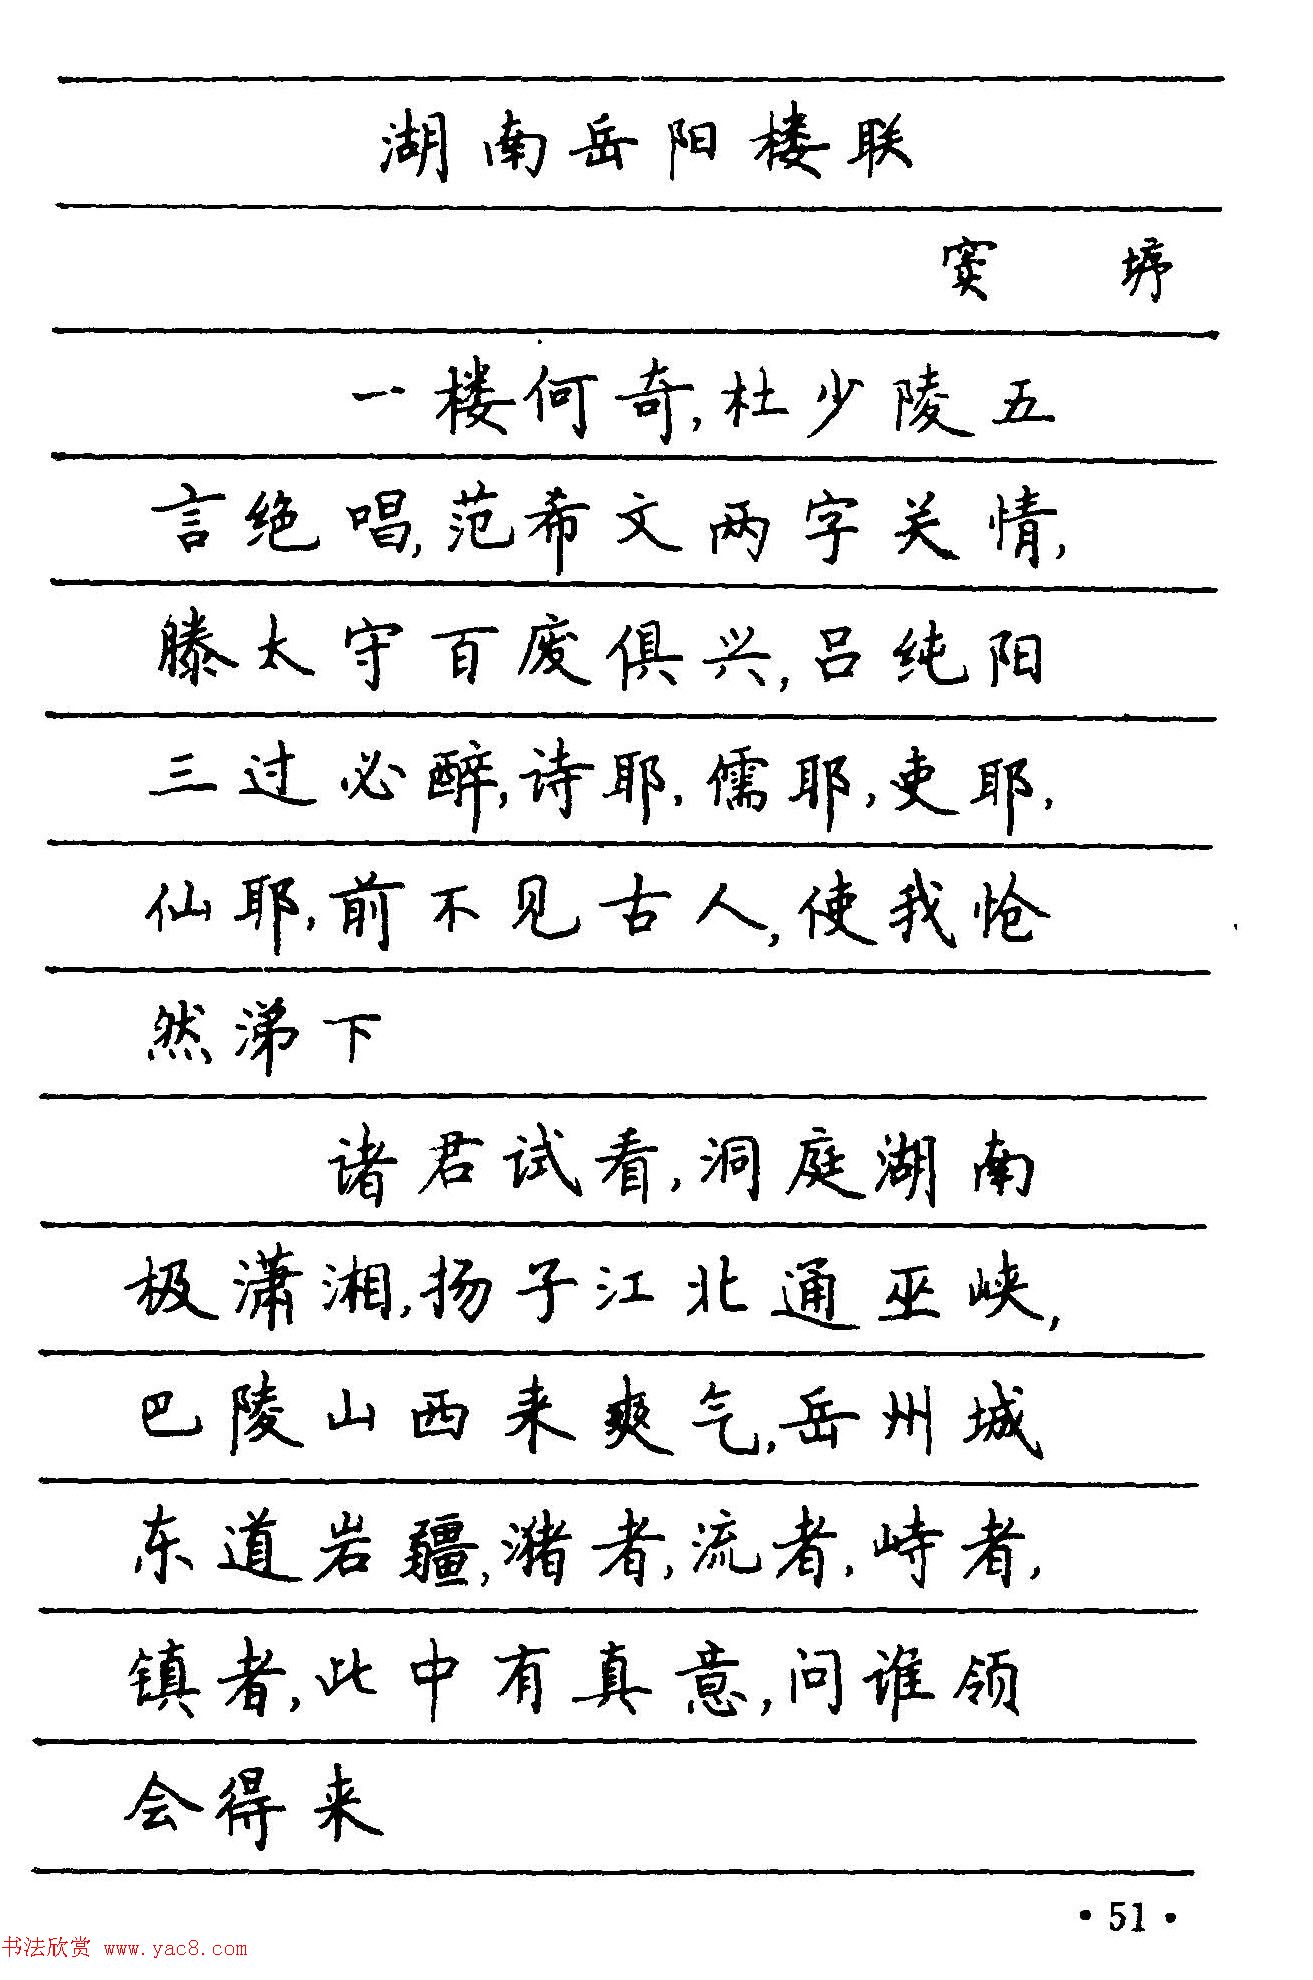 湖南岳阳楼联
窦 垿
一楼何奇,杜少陵五
言绝唱,范希文两字关情,
滕太守百废俱兴,吕纯阳
三过必醉,诗耶,儒耶,吏耶,
仙耶,前不见古人,使我怆
然涕下
诸君试看,洞庭湖南
极潇湘,扬子江北通巫峡,
巴陵山西来爽气,岳州城
东道岩疆,潴者,流者,峙者,
镇者,此中有真意,问谁领
会得来
·51·
书法欣赏 www.yac8.com